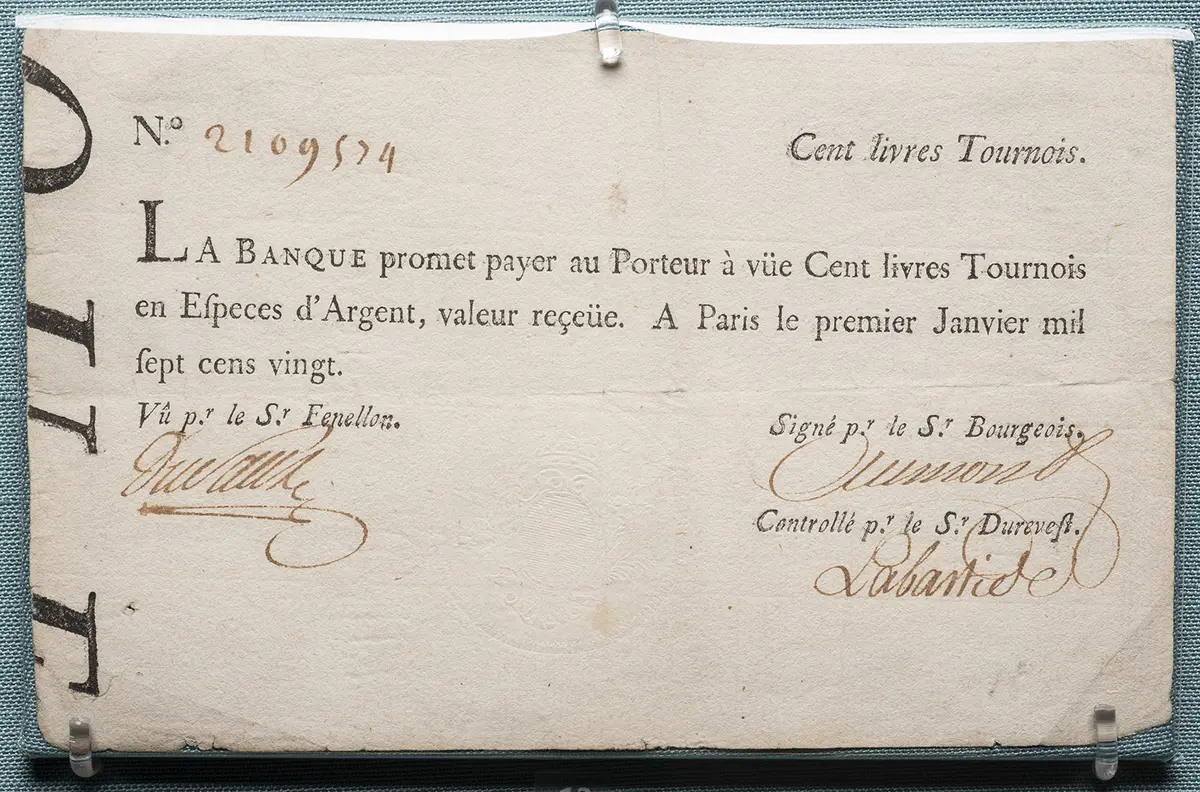 N.º 2109574
Cent livres Tournois.
LA BANQUE promet payer au Porteur à vüe Cent livres Tournois
en Eſpeces d'Argent, valeur reçeüe. A Paris le premier Janvier mil
ſept cens vingt.
Vû p.r le S.r Fenellon.
Signé p.r le S.r Bourgeois.
Controllé p.r le S.r Dureveſt.